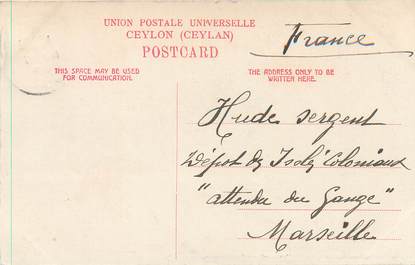 UNION POSTALE UNIVERSELLE
CEYLON (CEYLAN)
POSTCARD
France
THIS SPACE MAY BE USED
FOR COMMUNICATION.
THE ADDRESS ONLY TO BE
WRITTEN HERE.
Hude sergent
Dépot des Isolés Coloniaux
"attendu du Gange"
Marseille